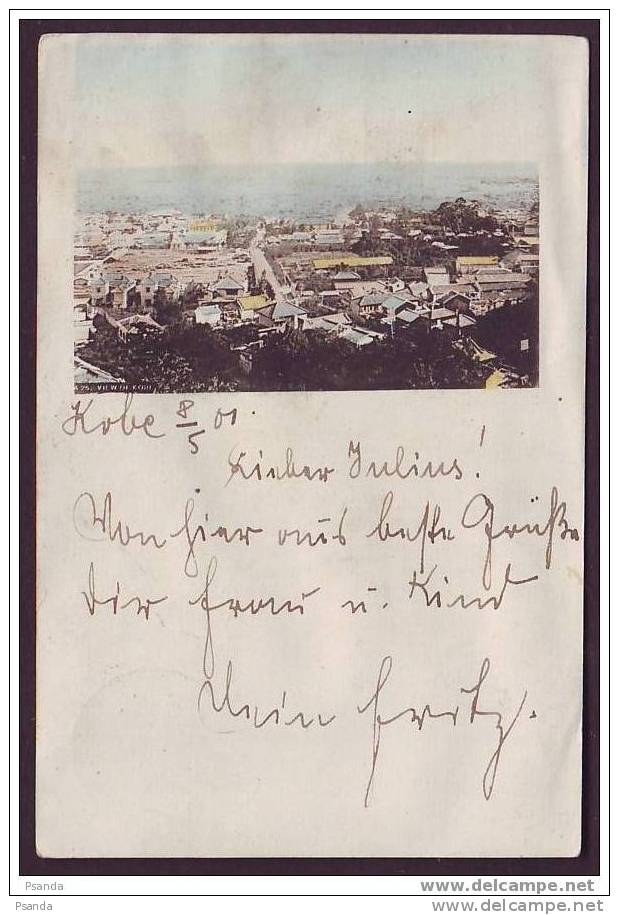 A 25. VIEW OF KOBE
Kobe 8/5 01.
Lieber Julius!
Von hier aus beste Grüße
Dir Frau u. Kind
Dein Fritz.
Psanda
www.delcampe.net
Psanda
www.delcampe.net